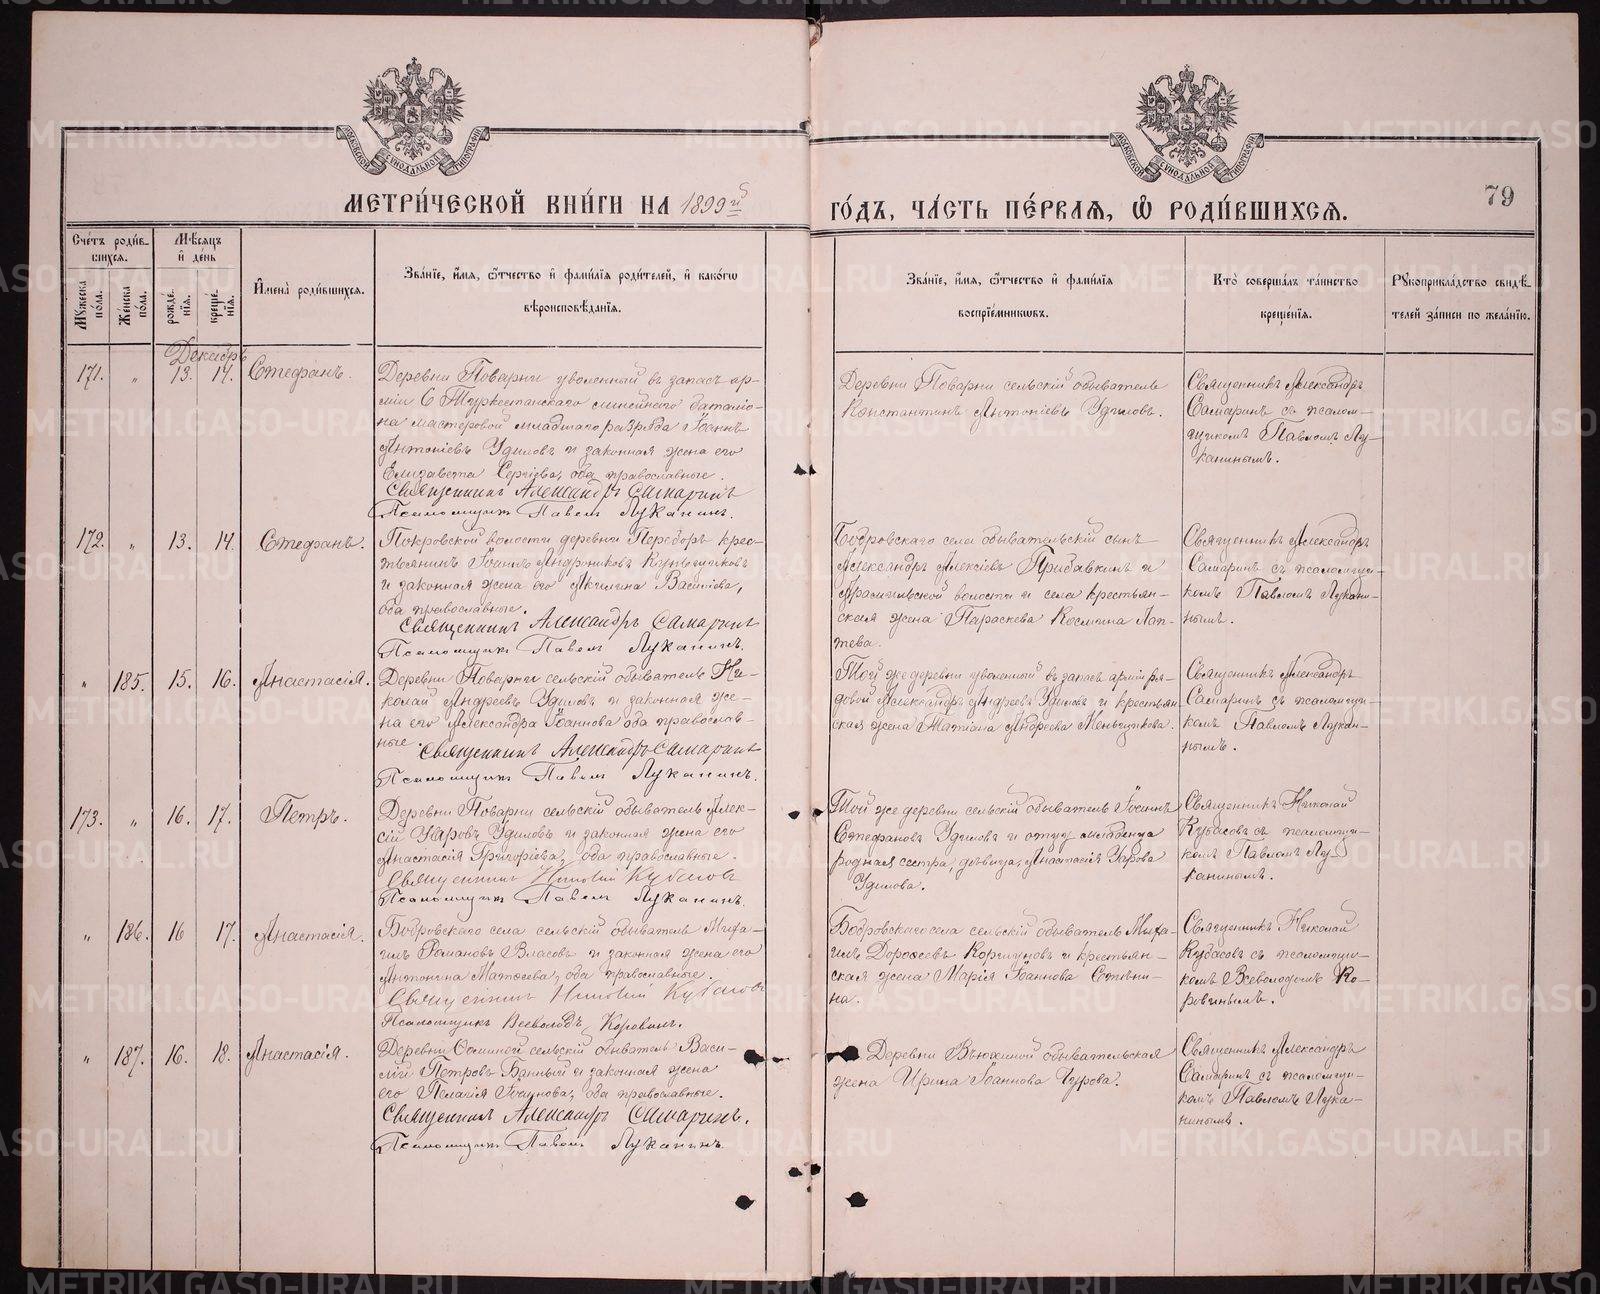 МОСКОВСКОЙ СѴНОДАЛЬНОЙ ТИПОГРАФІИ
МОСКОВСКОЙ СѴНОДАЛЬНОЙ ТИПОГРАФІИ
МЕТРИ́ЧЕСКОЙ КНИ́ГИ НА 1899й
ГО́ДЪ, ЧА́СТЬ ПЕ́РВАЯ, Ѡ РОДИ́ВШИХСЯ.
79
Сче́тъ роди́в-
шихся.
Мѣ́сяцъ
и҆ де́нь
Мꙋ́жеска
по́ла.
Же́нска
по́ла.
рожде́-
нїя.
креще́-
нїя.
И҆мена̀ роди́вшихся.
Зва́нїе, и҆́мя, ѻ҆́тчество и҆ фами́лїя роди́телей, и҆ како́гѡ
вѣроисповѣ́данїя.
Зва́нїе, и҆́мя, ѻ҆́тчество и҆ фами́лїя
воспрїе́мникѡвъ.
Кто̀ соверша́лъ та́инство
креще́нїя.
Рꙋкоприкла́дство свидѣ́-
телей за́писи по жела́нїю.
Декабрь
171. " 13. 14. Стефанъ.
Деревни Поварни уволенный въ запасъ ар-
міи 6 Туркестанскаго линейнаго баталіо-
на мастеровой младшаго разряда Іоаннъ
Антоніевъ Удиловъ и законная жена его
Елизавета Сергіева, оба православные.
Священникъ Александръ Самаринъ
Псаломщикъ Павелъ Луканинъ.
Деревни Поварни сельскій обыватель
Константинъ Антоніевъ Удиловъ.
Священникъ Александръ
Самаринъ съ псалом-
щикомъ Павломъ Лу-
канинымъ.
172. " 13. 14. Стефанъ.
Покровской волости деревни Переборъ крес-
тьянинъ Іоаннъ Андрониковъ
и законная жена его Акилина Василіева,
оба православные.
Священникъ Александръ Самаринъ
Псаломщикъ Павелъ Луканинъ.
Бобровскаго села обывательскій сынъ
Александръ Алексіевъ Прибавкинъ и
Арамильской волости и села крестьян-
ская жена Параскева Космина Лап-
тева.
Священникъ Александръ
Самаринъ съ псаломщи-
комъ Павломъ Лукани-
нымъ.
" 185. 15. 16. Анастасія.
Деревни Поварни сельскій обыватель Ни-
колай Андреевъ Удиловъ и законная же-
на его Александра Іоаннова оба православ-
ные.
Священникъ Александръ Самаринъ
Псаломщикъ Павелъ Луканинъ.
Той же деревни уволенный въ запасъ арміи ря-
довой Александръ Андреевъ Удиловъ и крестьян-
ская жена Татіана Андреева Меньщикова.
Священникъ Александръ
Самаринъ съ псаломщи-
комъ Павломъ Лукан-
нымъ.
173. " 16. 17. Петръ.
Деревни Поварни сельскій обыватель Алек-
сій Уаровъ Удиловъ и законная жена его
Анастасія Григоріева, оба православные.
Священникъ Николай Кубасовъ
Псаломщикъ Павелъ Луканинъ.
Той же деревни сельскій обыватель Іоаннъ
Стефановъ Удиловъ и отцу младенца
родная сестра, дѣвица, Анастасія Уарова
Удилова.
Священникъ Николай
Кубасовъ съ псаломщи-
комъ Павломъ Лу-
канинымъ.
" 186. 16 17. Анастасія.
Бобровскаго села сельскій обыватель Миха-
илъ Романовъ Власовъ и законная жена его
Антонина Матѳеева, оба православные.
Священникъ Николай Кубасовъ
Псаломщикъ Всеволодъ Коровинъ.
Бобровскаго села сельскій обыватель Миха-
илъ Дороѳеевъ Коршуновъ и крестьян-
ская жена Марія Іоаннова
Священникъ Николай
Кубасовъ съ псаломщи-
комъ Всеволодомъ Ко-
ровинымъ.
" 187. 16. 18. Анастасія.
Деревни сельскій обыватель Васи-
лій Петровъ Банный и законная жена
его Пелагія Іоаннова, оба православные.
Священникъ Александръ Самаринъ.
Псаломщикъ Павелъ Луканинъ.
Деревни Вьюхиной обывательская
жена Ирина Іоаннова Чурова.
Священникъ Александръ
Самаринъ съ псаломщи-
комъ Павломъ Лука-
нинымъ.
METRIKI.GASO-URAL.RU